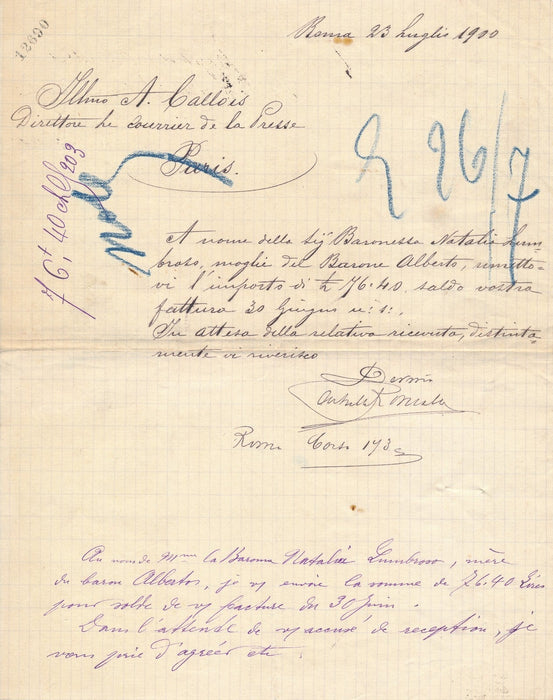 12690
Roma 23 Luglio 1900
Illmo A. Callois
Direttore le courrier de la Presse
Paris.
76+ 40 ch 903
R 26/7
A nome della Sig Baronessa Natalia Lum-
broso, moglie del Barone Alberto, rimetto-
vi l'importo di £ 76.40, saldo vostra
fattura 30 Giugno u: s:.
In attesa della relativa ricevuta, distinta-
mente vi riverisco
Devmo
Roma Corso 173
Au nom de Mme la Baronne Natalie Lumbroso, mère
du baron Alberto, je vs envoie la somme de 76.40 Lires
pour solde de vs facture du 30 Juin.
Dans l'attente de vs accusé de reception, je
vous prie d'agreer etc.